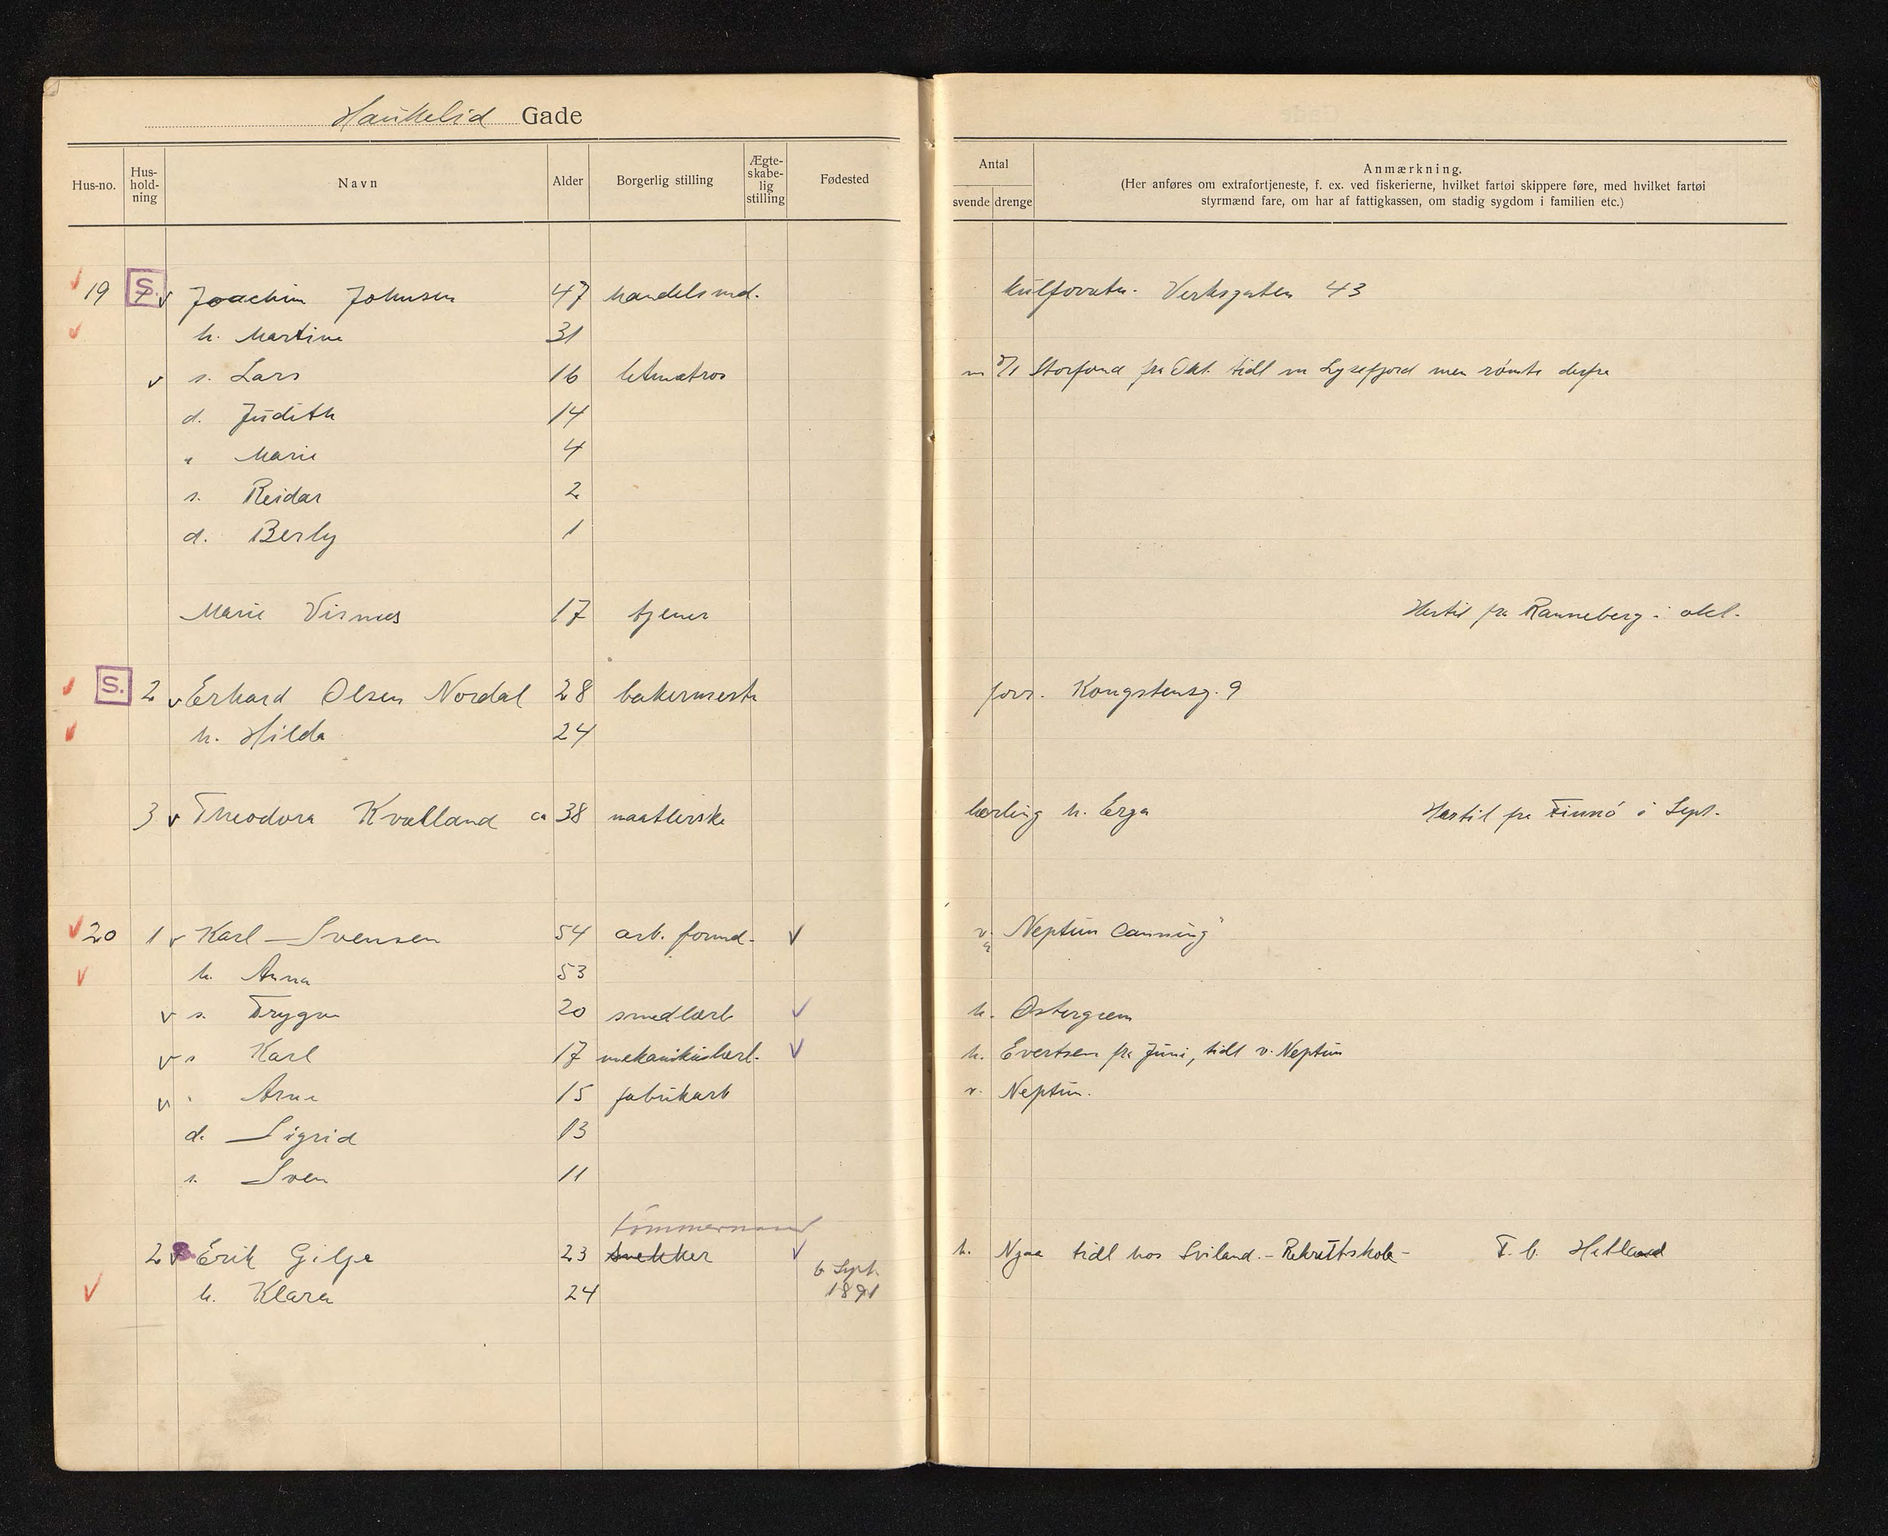 Haukelid Gade
Hus-no. Hus-hold-ning Navn Alder Borgerlig stilling Ægte-skabe-lig stilling Fødested Antal svende drenge Anmærkning.
(Her anføres om extrafortjeneste, f. ex. ved fiskerierne, hvilket fartøi skippere føre, med hvilket fartøi
styrmænd fare, om har af fattigkassen, om stadig sygdom i familien etc.)
19 S. v Joachim Johnsen 47 handelsmd. Verksgaten 43
h. Martine 31
v s. Lars 16 letmatros m d/s Storfond fra Okt. tidl m Lysefjord men rømte derfra
d. Judith 14
" Marie 4
s. Reidar 2
d. Berly 1
Marie Visnes 17 tjener Hertil fra Ranneberg i okt.
S. 2 v Erhard Olsen Nordal 28 bakermestr forr. Kongstensg. 9
h. Hilda 24
3 v Theodora Kvalland ca 38 lærling h. Erga Hertil fra Finnø i Sept.
20 1 v Karl Svensen 54 arb. formd. v v. Neptun Canning"
h. Anna 53
v s. Trygve 20 smedlærl v h. Østergren
v s Karl 17 mekanikerlærl. v h. Evertsen fra Juni, tidl v. Neptun
v " Arne 15 fabrikarb v. Neptun.
d. Sigrid 13
s. Sven 11
tømmermand
2 v Erik Gilje 23 snekker v h. Njaa tidl hos Sviland. - Rekrutskole - T. b. Hetland
6 Sept.
h. Klara 24 1891